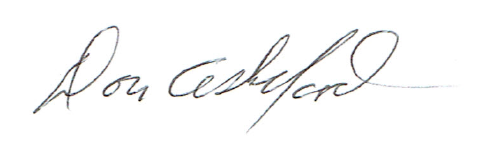 Don Ashford